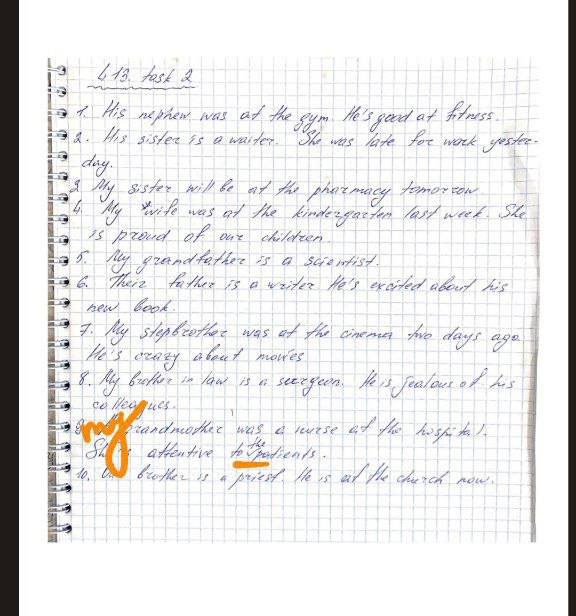 L 13. task 2
1. His nephew was at the gym. He's good at fitness.
2. His sister is a waiter. She was late for work yester-
day.
3 My sister will be at the pharmacy tomorrow
4. My wife was at the kindergarten last week. She
is proud of our children.
5. My grandfather is a scientist.
6. Their father is a writer. He's excited about his
new book.
7. My stepbrother was at the cinema two days ago.
He's crazy about movies
8. My brother in law is a surgeon. He is jealous of his
colleagues.
9 my grandmother was a nurse at the hospital.
She's attentive to the patients.
10. brother is a priest. He is at the church now.